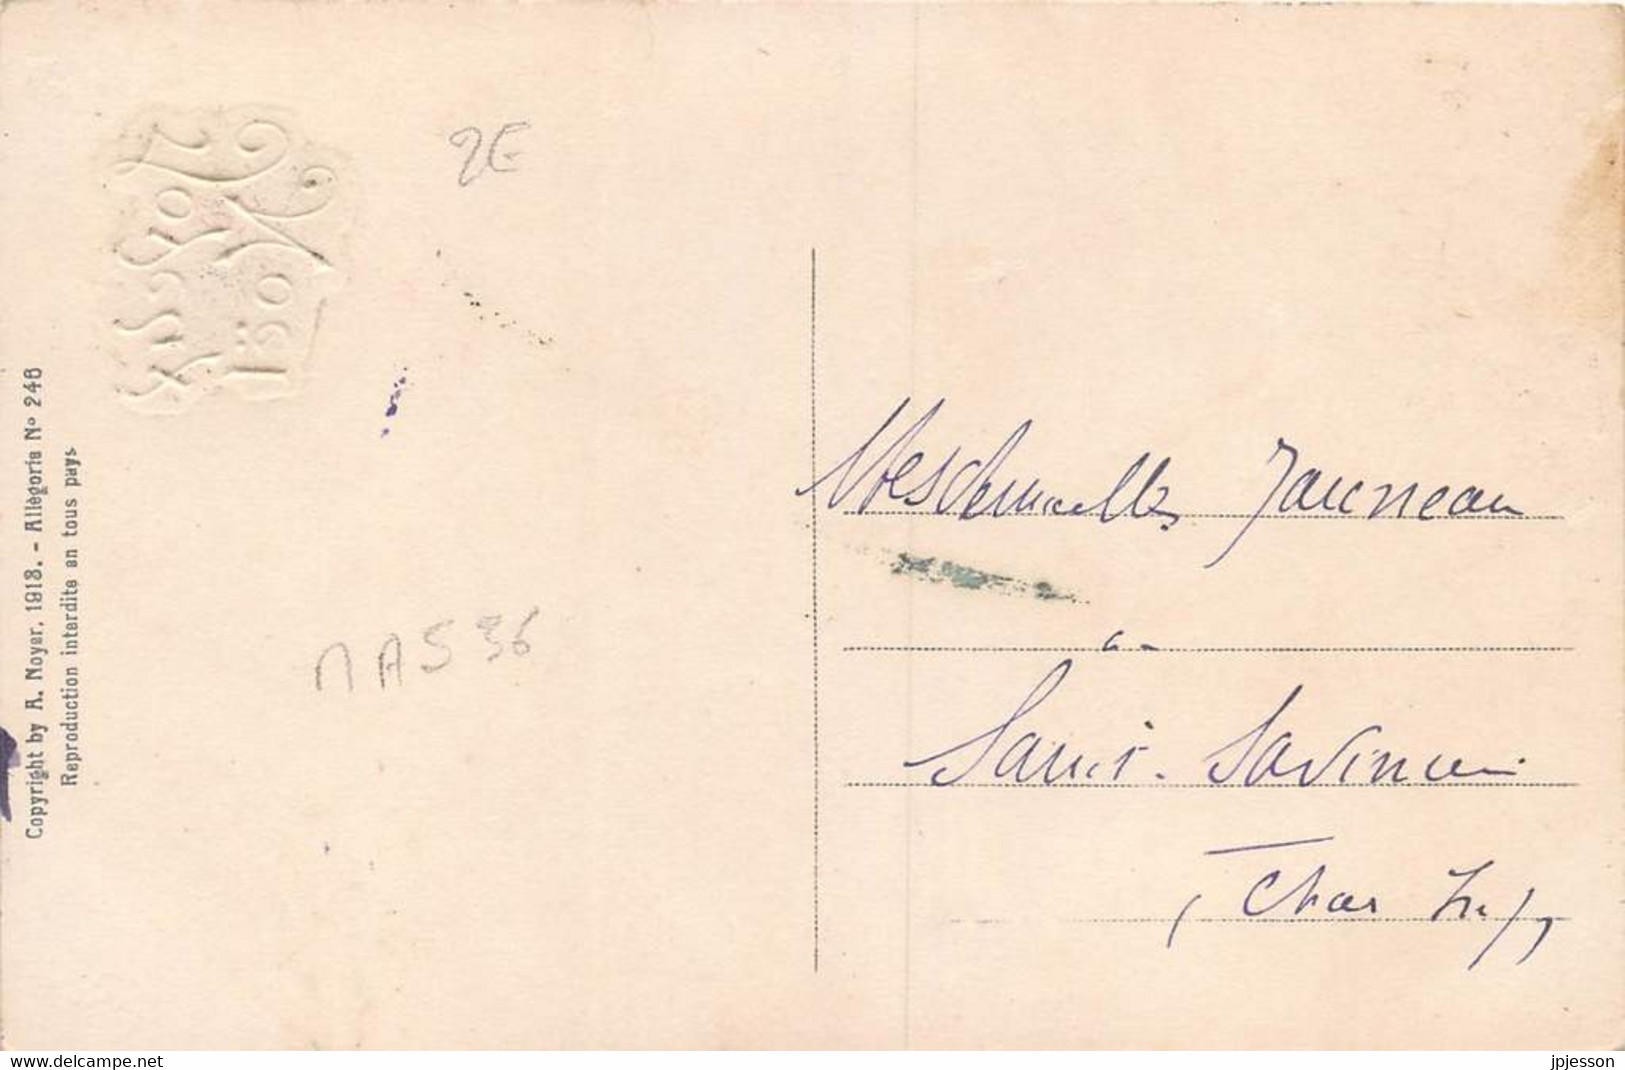 Copyright by A. Noyer, 1918. - Allégorie N° 246
Reproduction interdite en tous pays
2E
MAS 36
Mesdemoiselles Jauneau
à
Saint-Savinien
(Char Inf)
www.delcampe.net
jpjesson